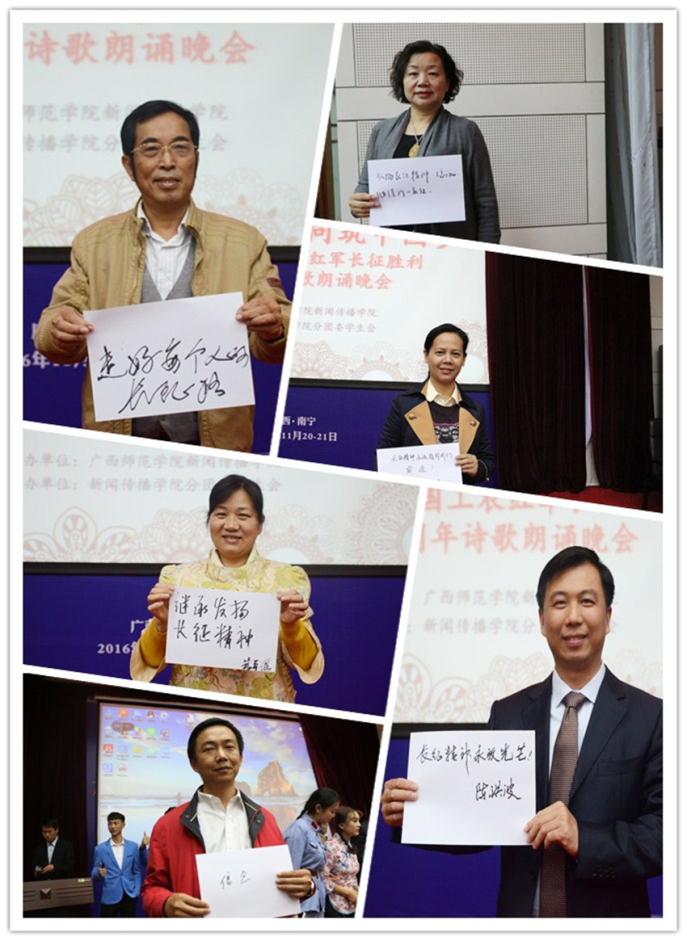 诗歌朗诵晚会
师范学院新闻传播学院
传播学院分团委学生会
走好每个人的
长征路
弘扬长征精神
同筑中国梦
红军长征胜利
歌朗诵晚会
院新闻传播学院
学院分团委学生会
西·南宁
11月20-21日
长征精神永远指引我们
前进!
办单位:广西师范学院新闻传播学院
办单位:新闻传播学院分团委学生会
继承发扬
长征精神
2016年
国工农红军
周年诗歌朗诵晚会
广西师范学院新
新闻传播学
长征精神永放光芒!
陈洪波
信念